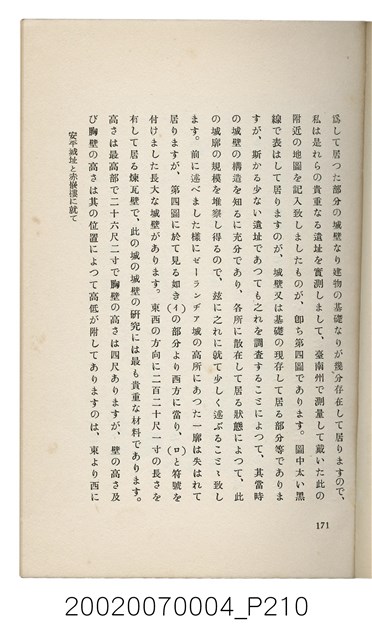 爲して居つた部分の城壁なり建物の基礎なりが幾分存在して居りますので、
私は是れらの貴重なる遺址を實測しまして、臺南州で測量して戴いた此の
附近の地圖を記入致しましたものが、卽ち第四圖であります。圖中太い黑
線で表はして居りますのが、城壁又は基礎の現存して居る部分等でありま
すが、斯かる少ない遺址であつても之れを調査することによつて、其當時
の城壁の構造を知るに充分であり、各所に散在して居る狀態によつて、此
の城廓の規模を堆察し得るので、玆に之れに就て少しく述ぶることゝ致し
ます。前に述べました樣にゼーランヂァ城の高所にあつた一廓は失はれて
居りますが、第四圖に於て見る如き(イ)の部分より西方に當り、(ロ)と符號を
付けました長大な城壁があります。東西の方向に二百二十尺一寸の長さを
有して居る煉瓦壁で、此の城の城壁の硏究には最も貴重な材料であります。
高さは最高部で二十六尺二寸で胸壁の高さは四尺ありますが、壁の高さ及
び胸壁の高さは其の位置によつて高低が附してありますのは、東より西に
安平城址と赤嵌樓に就て
171
20020070004_P210